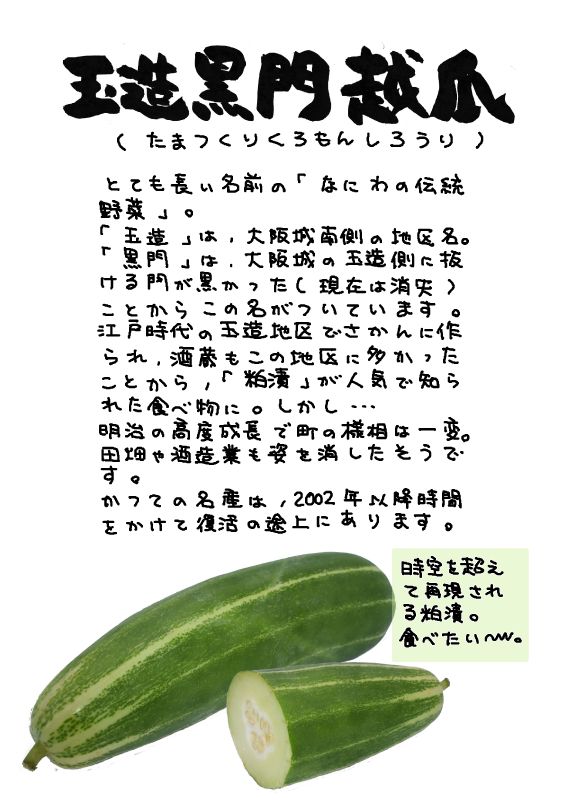 玉造黒門越瓜
(たまつくりくろもんしろうり)
とても長い名前の「なにわの伝統
野菜」。
「玉造」は、大阪城南側の地区名。
「黒門」は、大阪城の玉造側に抜
ける門が黒かった(現在は消失)
ことからこの名がついています。
江戸時代の玉造地区でさかんに作
られ、酒蔵もこの地区に多かった
ことから、「粕漬」が人気で知ら
れた食べ物に。しかし…
明治の高度成長で町の様相は一変。
田畑や酒造業も姿を消したそうで
す。
かつての名産は、2002年以降時間
をかけて復活の途上にあります。
時空を超え
て再現され
る粕漬。
食べたい〜。